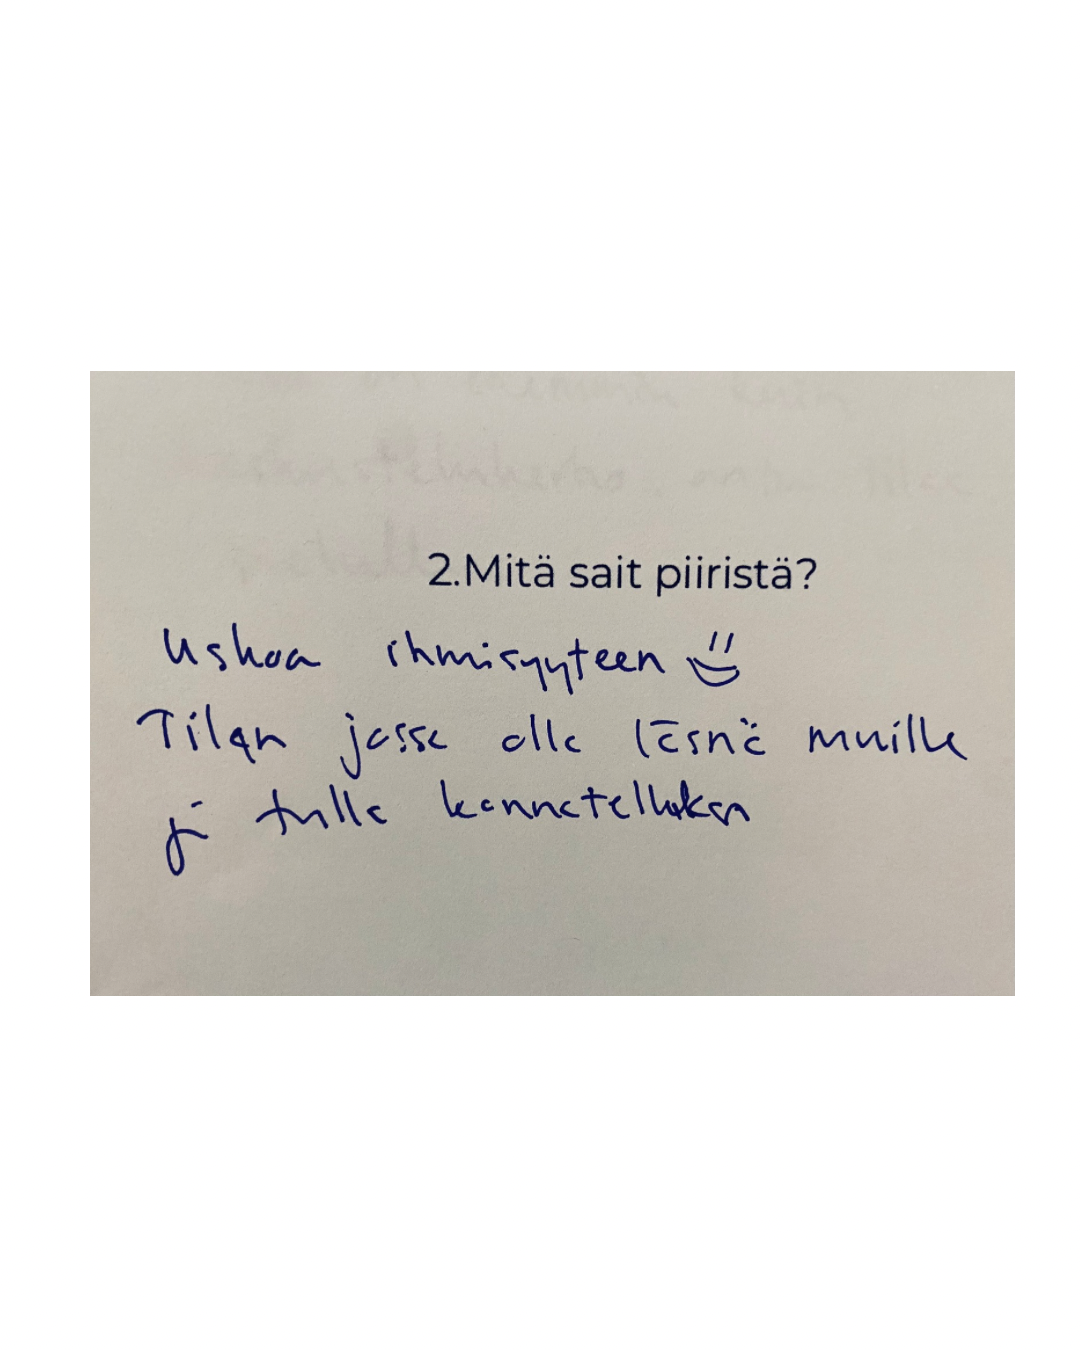 2.Mitä sait piiristä?
Uskoa ihmisyyteen
Tilan jossa olla läsnä muille
ja tulla kannatelluksi